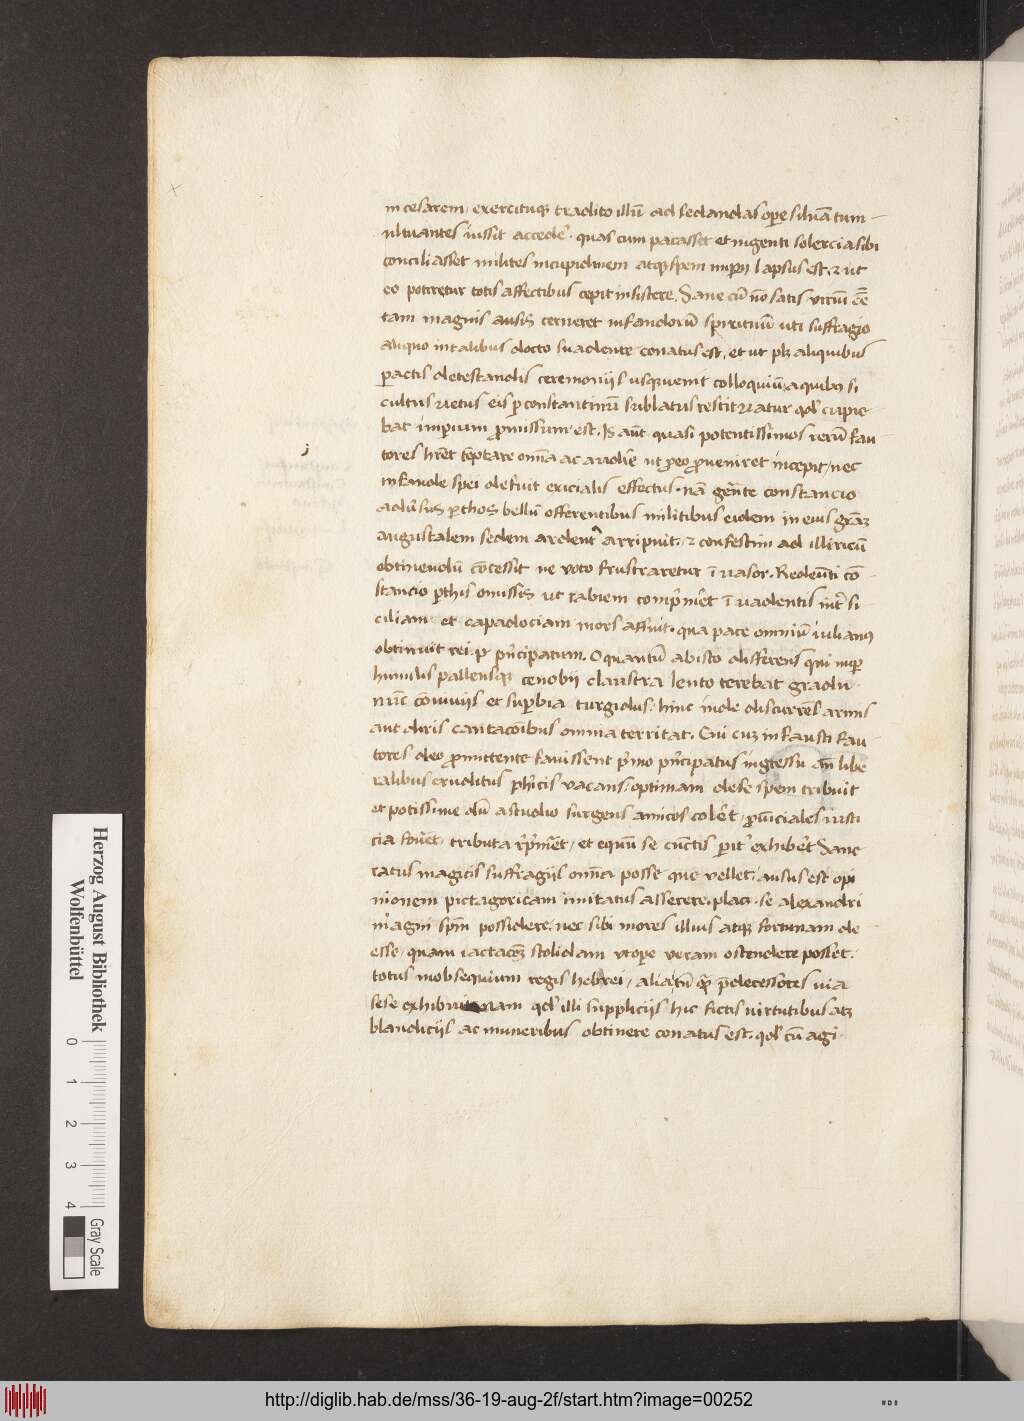 in cesarem, exercituq̃ tradito illũ ad sedandas ope siluã tum-
ultuantes iussit accedẽ. quas cum pacasset et ingenti solercia sibi
conciliasset milites in cupidinem atq̃ spem imp̃ij lapsus est, ⁊ ut
eo potiretur totis affectibus cepit insistere. Sane cũ nõ satis viriũ eẽ
tam magnis ausis cerneret infandorũ spirituũ uti suffragio
aliquo in talibus docto suadente conatus est, et ut plꝫ aliquibus
pactis detestandis ceremonijs usq̃uenit colloquiũ, a quibꝫ si
cultus uetus eis p constantinũ sublatus restitueatur qd̃ cupie
bat imperium p̃missum est. Is aũt quasi potentissimos rerũ fau
tores hr̃et tẽptare om̃ia ac audẽ ut p̃ eo p̃ueniret incepit, nec
infande spei defuit exicialis effectus. nã gerẽte constancio
adũsus p̃thos bellũ offerentibus militibus eidem in eius grãꝫ
augustalem sedem ardentr̃ arripuit. ⁊ confestim ad illiricũ
obtinendũ cõcessit ne voto frustraretur ĩuasor. Redeũti cõ-
stancio p̃this omissis ut rabiem comp̃mẽt ĩuadentis int̃ si-
ciliam et capadociam mors affuit. qua pace omniũ iulianꝰ
obtinuit rei. p. pñcipatum. O quantũ ab isto differens qui nup
humilis pallensq̃ cenobij claustra lento terebat gradu.
nũc cõuiuijs et supbia turgidus. hinc inde discurrẽs armis
aut diris cantacõibus omnia territat. Cui cuꝫ infausti fau-
tores deo p̃mittente fauissent p̃mo pñcipatus ingressu añ libe
ralibus eruditus ph̃icis vacans. optimam de se spem tribuit
et potissime dũ a studio surgens amicos colẽt, p̃uĩciales iusti
cia fouẽt, tributa rp̃mẽt, et equũ se cũctis parit̃ exhibẽt. Sane
ratus magicis suffragijs om̃ia posse que vellet, ausus est opi
nionem pictagoricam imitatus asserere. placi. se alexandri
magni sp̃m possidere, nec sibi mores illius atq̃ fortunam de
esse, quam iactacõꝫ stolidam utope veram ostendere possꝫt.
totus in obsequium regis hebrei, alia tñ q̃ p̃decessores uia
sese exhibuit nam qd̃ illi supplicijs hic fictis uirtutibus atꝫ
blandicijs ac muneribus obtinere conatus est. qd̃ cũ agi.
Herzog August Bibliothek
Wolfenbüttel
0 1 2 3 4
Gray Scale
http://diglib.hab.de/mss/36-19-aug-2f/start.htm?image=00252